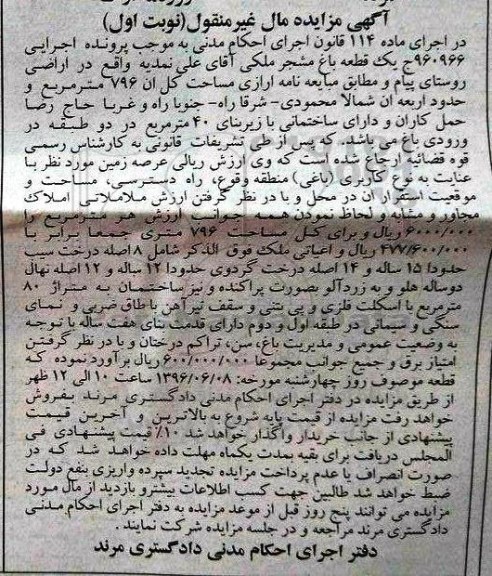 آگهی مزایده مال غیرمنقول(نوبت اول)
در اجرای ماده ۱۱۴ قانون اجرای احکام مدنی به موجب پرونده اجرایی
۹۶۰۹۶۶ج یک قطعه باغ مشجر ملکی آقای علی نمدیه واقع در اراضی
روستای پیام و مطابق مبایعه نامه ارازی مساحت کل ان ۷۹۶ مترمربع و
حدود اربعه ان شمالاً محمودی- شرقا راه- جنوبا راه و غربا حاج رضا
حمل کاران و دارای ساختمانی با زیربنای ۴۰ مترمربع در دو طبقه در
ورودی باغ می باشد. که پس از طی تشریفات قانونی به کارشناس رسمی
قوه قضائیه ارجاع شده است که وی ارزش ریالی عرصه زمین مورد نظر با
عنایت به نوع کاربری (باغی) منطقه وقوع، راه دسترسی، مساحت و
موقعیت استقرار آن در محل و با در نظر گرفتن ارزش ملاملاتی املاک
مجاور و مشابه و لحاظ نمودن همه جوانب ارزش هر مترمربع را
۶۰۰۰/۰۰۰ ریال و برای کل مساحت ۷۹۶ متری جمعا برابر با
۴۷۷/۶۰۰/۰۰۰ ریال و اعیانی ملک فوق الذکر شامل ۸ اصله درخت سیب
حدودا ۱۵ ساله و ۱۴ اصله درخت گردوی حدودا ۱۲ ساله و ۱۲ اصله نهال
دوساله هلو و به زردآلو بصورت پراکنده و نیز ساختمان به متراژ ۸۰
مترمربع با اسکلت فلزی و پی بتنی و سقف تیرآهن با طاق ضربی و نمای
سنگی و سیمانی در طبقه اول و دوم دارای قدمت بنای هفت ساله با توجه
به وضعیت عمومی و مدیریت باغ، سن، تراکم درختان و با در نظر گرفتن
امتیاز برق و جمیع جوانب مجموعا ۶۰۰/۰۰۰/۰۰۰ ریال برآورد نموده که
قطعه موصوف روز چهارشنبه مورخه: ۱۳۹۶/۰۶/۰۸ ساعت ۱۰ الی ۱۲ ظهر
از طریق مزایده در دفتر اجرای احکام مدنی دادگستری مرند بفروش
خواهد رفت مزایده از قیمت پایه شروع به بالاترین و آخرین قیمت
پیشنهادی از جانب خریدار واگذار خواهد شد ۱۰٪ قیمت پیشنهادی فی
المجلس دریافت برای بقیه بمدت یکماه مهلت داده خواهد شد که در
صورت انصراف یا عدم پرداخت مزایده تجدید سپرده واریزی بنفع دولت
ضبط خواهد شد طالبین جهت کسب اطلاعات بیشترو بازدید از مال مورد
مزایده می توانند پنج روز قبل از موعد مزایده به دفتر اجرای احکام مدنی
دادگستری مرند مراجعه و در جلسه مزایده شرکت نمایند .
دفتر اجرای احکام مدنی دادگستری مرند